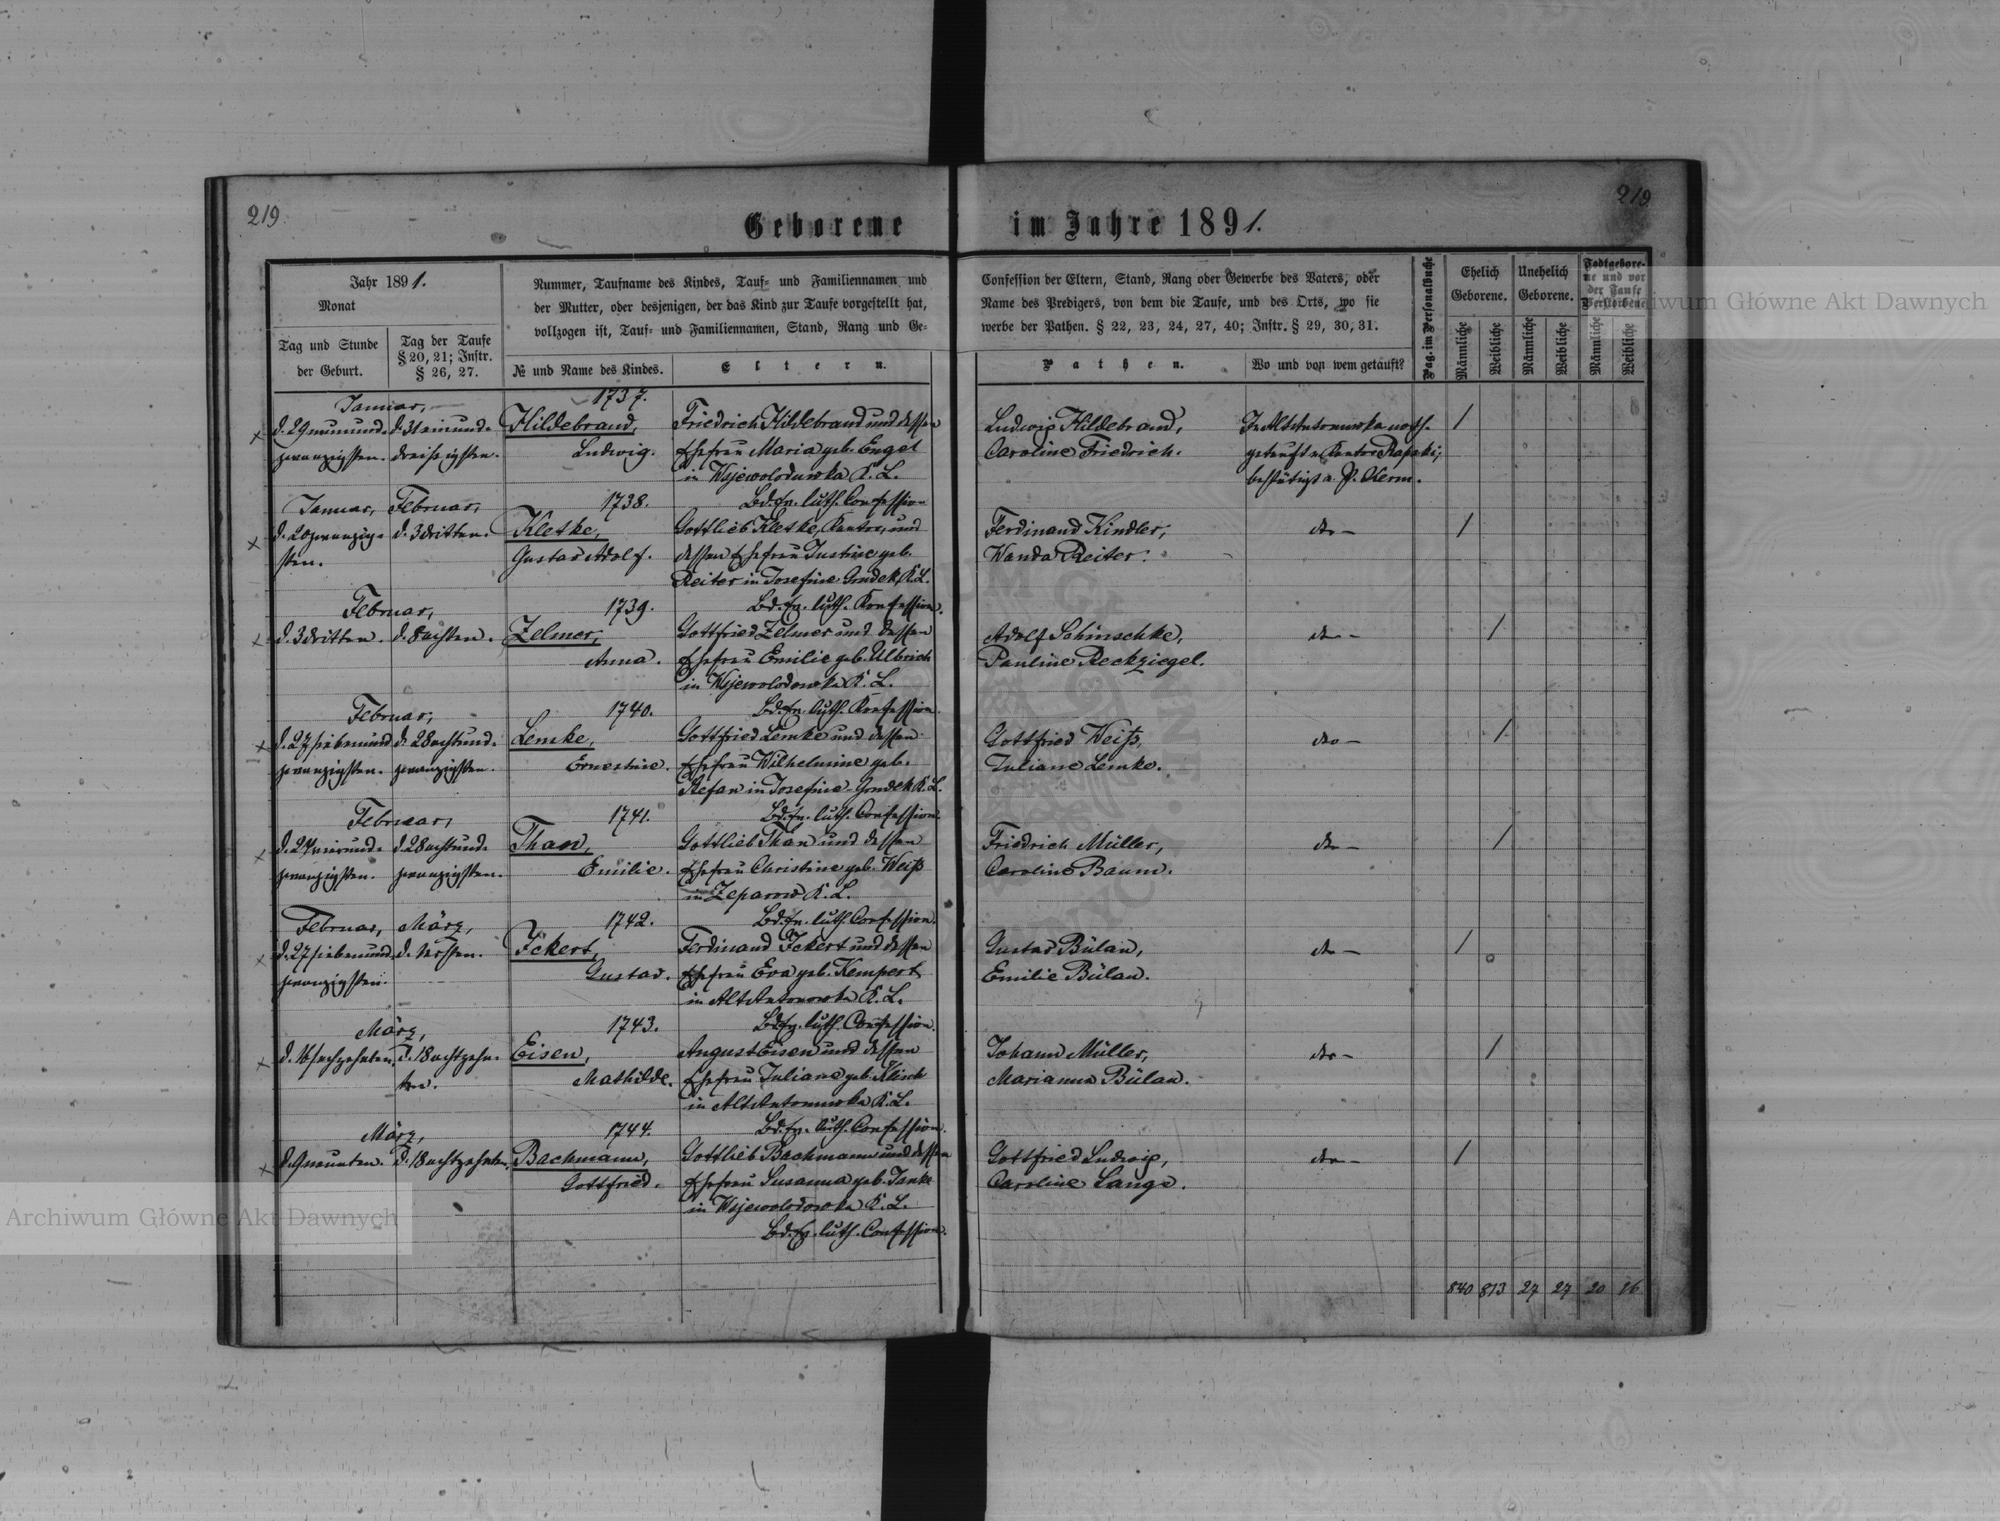 219.
219
Geborene im Jahre 1891.
Jahr 1891.
Monat
Tag und Stunde
der Geburt.
Tag der Taufe
§ 20, 21; Instr.
§ 26, 27.
Nummer, Taufname des Kindes, Tauf- und Familiennamen und
der Mutter, oder desjenigen, der das Kind zur Taufe vorgestellt hat,
vollzogen ist, Tauf- und Familiennamen, Stand, Rang und Ge-
№ und Name des Kindes.
Eltern.
Confession der Eltern, Stand, Rang oder Gewerbe des Vaters, oder
Name des Predigers, von dem die Taufe, und des Orts, wo sie
werbe der Pathen. § 22, 23, 24, 27, 40; Instr. § 29, 30, 31.
Pathen.
Wo und von wem getauft?
Pag. im Personalbuche
Ehelich
Geborene.
Unehelich
Geborene.
Todtgebore-
ne und vor
der Taufe
Verstorbene
Männliche
Weibliche
Männliche
Weibliche
Männliche
Weibliche
Januar,
1737.
d. 29 neunund-
zwanzigsten.
d. 31 einund-
dreißigsten.
Hildebrand,
Ludwig.
Friedrich Hildebrand und dessen
Ehefrau Maria geb. Engel
in Wsjewolodowka K. L.
Bd. Ev. luth. Confession
Ludwig Hildebrand,
Caroline Friedrich.
In Alt Antonowka noth-
getauft v. Kantor
bestätigt a. P. Kerm.
/
Januar, Februar,
1738.
d. 20 zwanzig-
sten.
d. 3 dritten.
Kletke,
Gustav Adolf.
Gottlieb Kletke, Kantor, und
dessen Ehefrau Justine geb.
Reiter in Josefine Gondek K. L.
Bd. Ev. luth. Konfession.
Ferdinand Kindler,
Wanda Reiter.
dto –
/
Februar,
1739.
d. 3 dritten.
d. 8 achten.
Zelmer,
Anna.
Gottfried Zelmer und dessen
Ehefrau Emilie geb. Ulbrich
in Wsjewolodowka K. L.
Bd. Ev. luth. Konfession.
Adolf Schinschke,
Pauline Reckziegel.
dto –
/
Februar,
1740.
d. 27 siebenund
zwanzigsten.
d. 28 achtund-
zwanzigsten.
Lemke,
Ernestine.
Gottfried Lemke und dessen
Ehefrau Wilhelmine geb.
Stefan in Josefine-Gondek K. L.
Bd. Ev. luth. Confession.
Gottfried Weiß,
Juliane Lemke.
dto –
/
Februar,
1741.
d. 24 vierund-
zwanzigsten.
d. 28 achtund-
zwanzigsten.
Than,
Emilie.
Gottlieb Than und dessen
Ehefrau Christine geb. Weiß
in Zeparow K. L.
Bd. Ev. luth. Confession.
Friedrich Müller,
Caroline Baum.
dto –
/
Februar, März,
1742.
d. 27 siebenund
zwanzigsten.
d. 1 ersten.
Ickert,
Gustav.
Ferdinand Ickert und dessen
Ehefrau Eva geb. Kempert
in Alt Antonowka K. L.
Bd. Ev. luth. Confession.
Gustav Bülan,
Emilie Bülan.
dto –
/
März,
1743.
d. 16 sechzehnten.
d. 18 achtzehn-
ten.
Eisen,
Mathilde.
August Eisen und dessen
Ehefrau Juliane geb. Klisch
in Alt Antonowka K. L.
Bd. Ev. luth. Confession.
Johann Müller,
Marianna Bülan.
dto –
/
März,
1744.
d. 9 neunten.
d. 18 achtzehnten.
Bachmann,
Gottfried.
Gottlieb Bachmann und dessen
Ehefrau Susanna geb. Janke
in Wsjewolodowka K. L.
Bd. Ev. luth. Confession.
Gottfried Ludwig,
Caroline Lange.
dto –
/
840 813 27 27 20 16
Archiwum Główne Akt Dawnych
Archiwum Główne Akt Dawnych